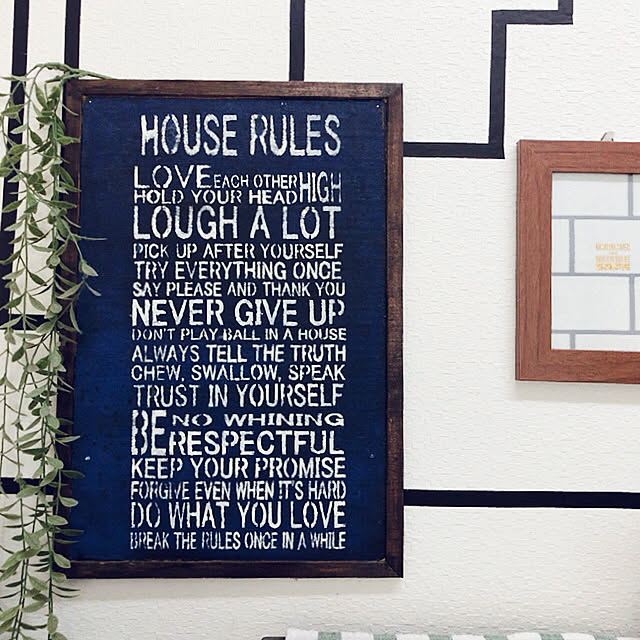 HOUSE RULES
LOVE EACH OTHER
HOLD YOUR HEAD HIGH
LOUGH A LOT
PICK UP AFTER YOURSELF
TRY EVERYTHING ONCE
SAY PLEASE AND THANK YOU
NEVER GIVE UP
DON'T PLAY BALL IN A HOUSE
ALWAYS TELL THE TRUTH
CHEW, SWALLOW, SPEAK
TRUST IN YOURSELF
NO WHINING
BE RESPECTFUL
KEEP YOUR PROMISE
FORGIVE EVEN WHEN IT'S HARD
DO WHAT YOU LOVE
BREAK THE RULES ONCE IN A WHILE